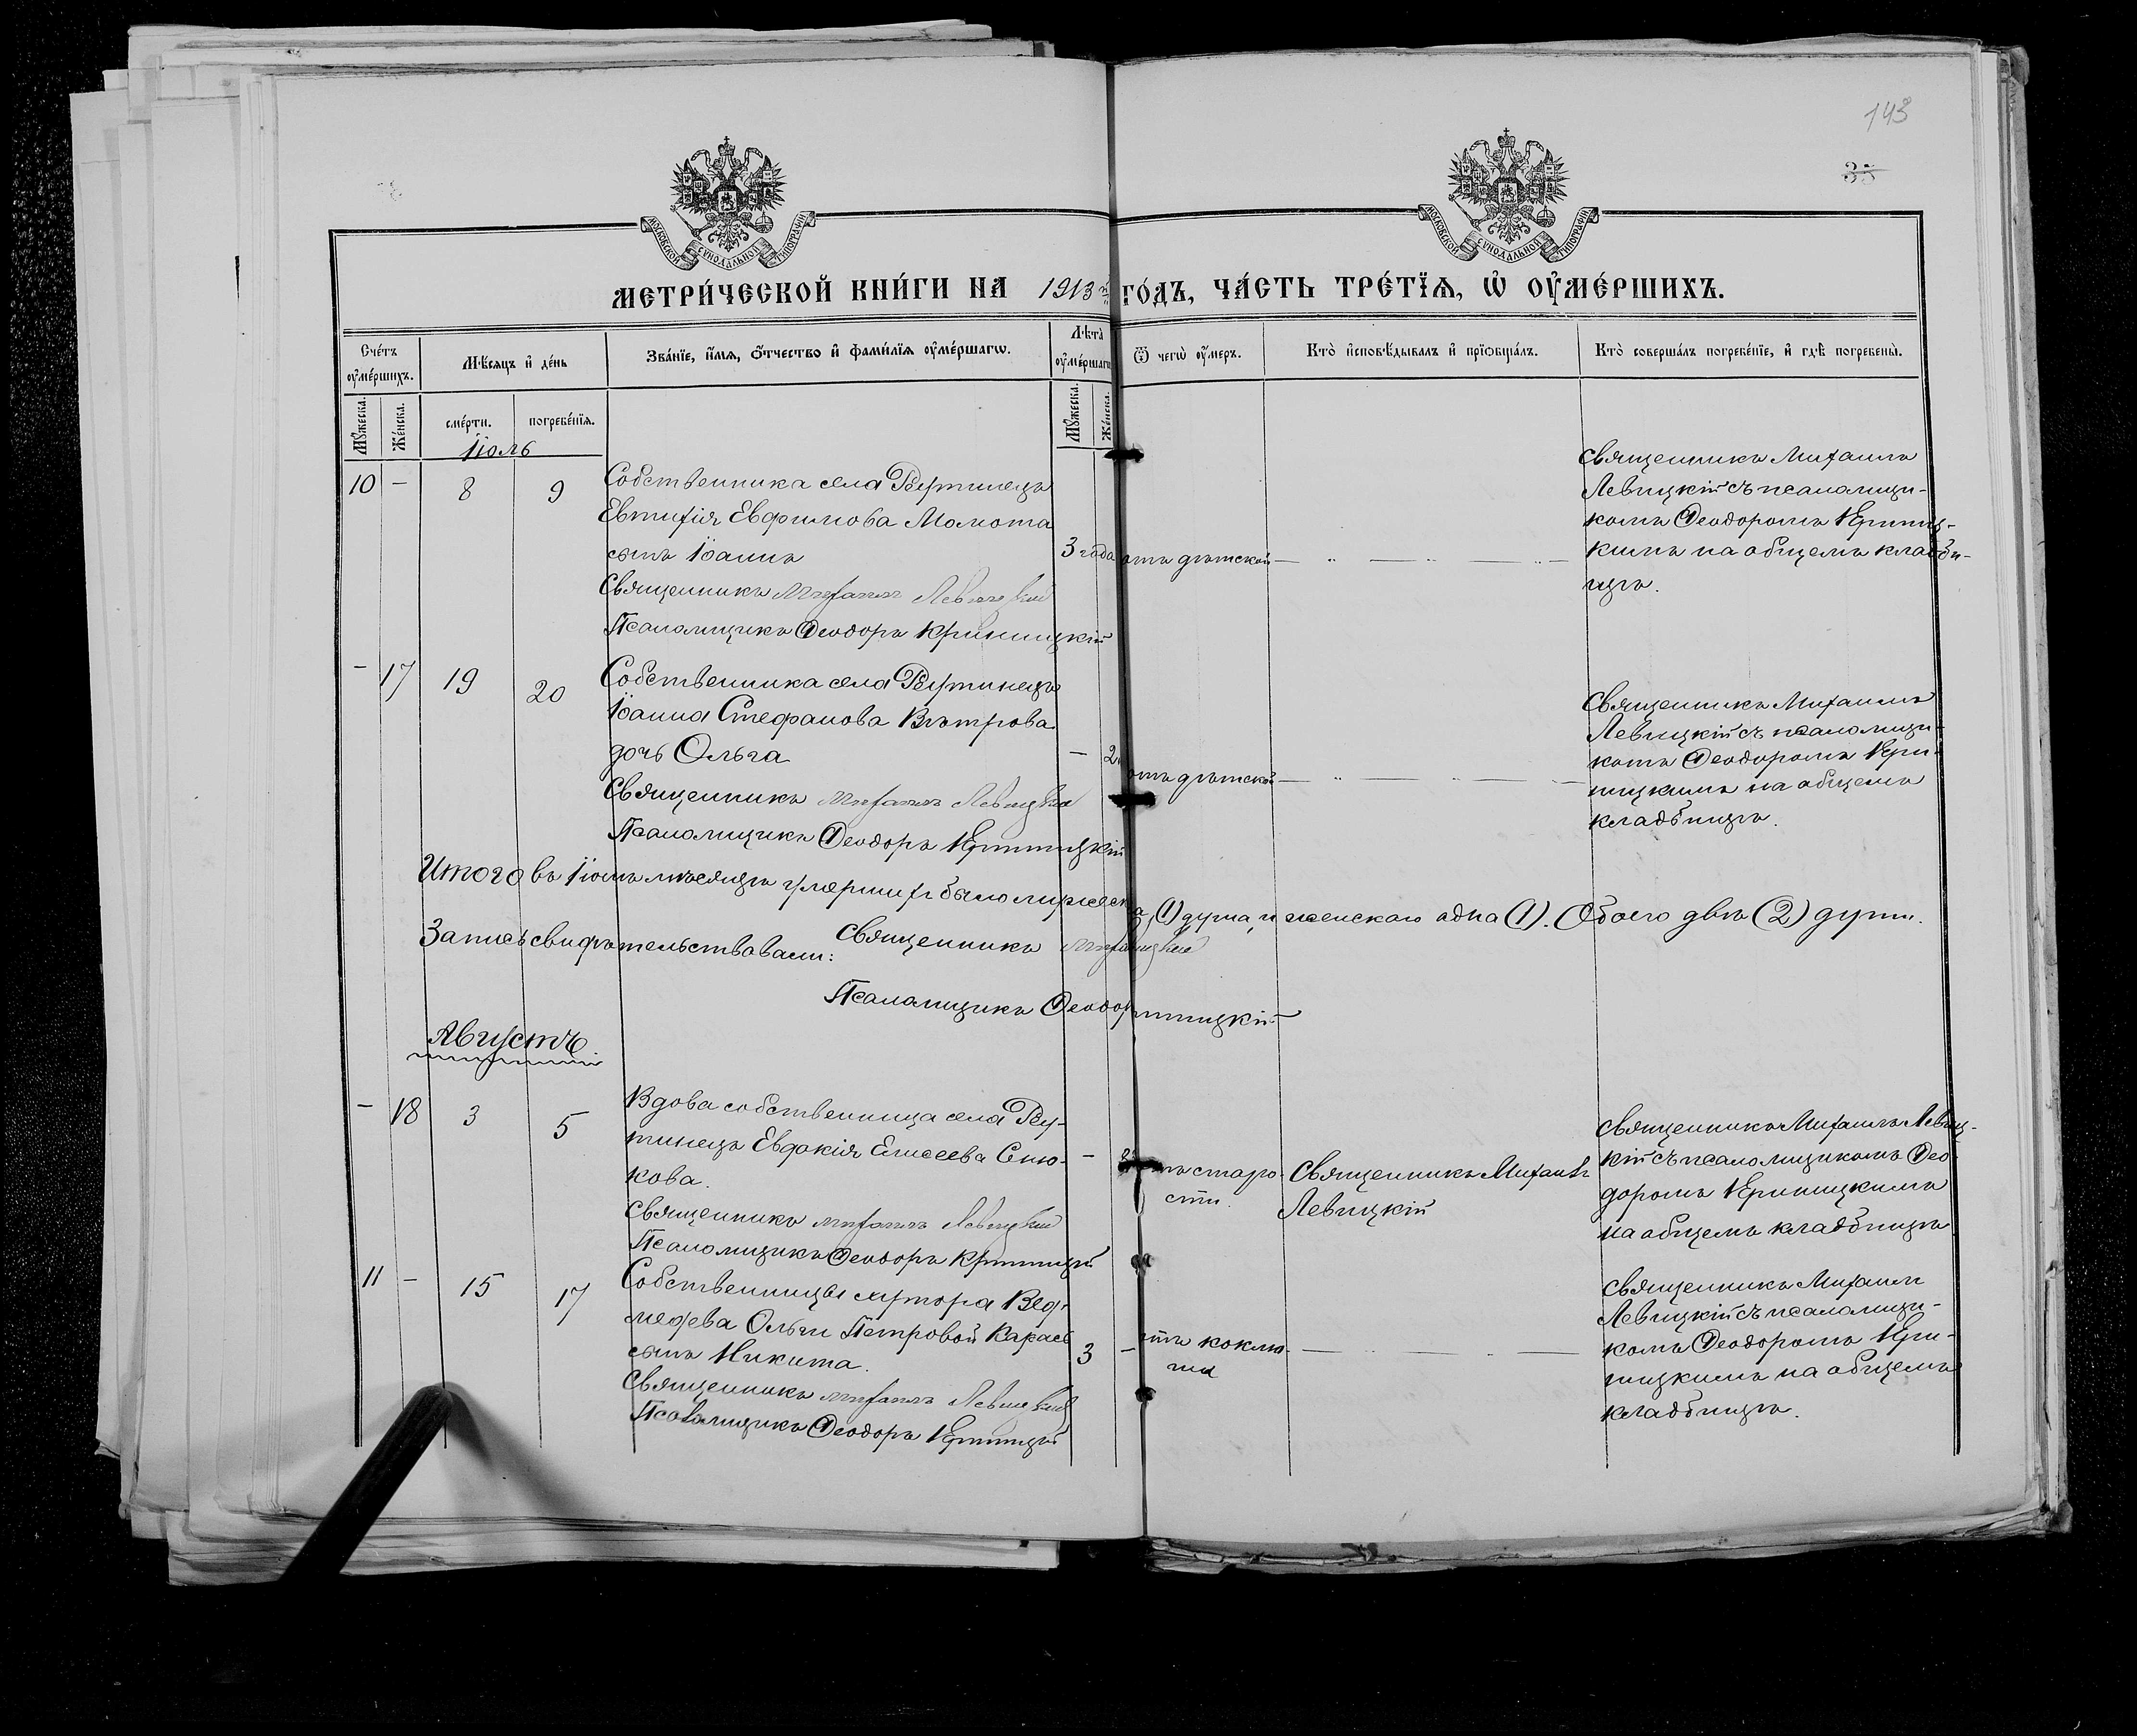 143
35
МОСКОВСКОЙ СѴНОДАЛЬНОЙ ТИПОГРАФІИ
МОСКОВСКОЙ СѴНОДАЛЬНОЙ ТИПОГРАФІИ
МЕТРИ́ЧЕСКОЙ КНИ́ГИ НА 1913 ГО́ДЪ, ЧА́СТЬ ТРЕ́ТЇѦ, Ѡ҆ ОУ҆МЕ́РШИХЪ.
Сче́тъ оу҆ме́ршихъ.
Мѣ́сяцъ и҆ де́нь
Зва́нїе, и҆́мѧ, ѻ҆́тчество и҆ фами́лїѧ оу҆ме́ршагѡ.
Лѣ́та оу҆ме́ршаг
Ѿ чегѡ̀ оу҆́меръ.
Кто̀ и҆сповѣ́дывалъ и҆ прїѡбща́лъ.
Кто̀ соверша́лъ погребе́нїе, и҆ гдѣ̀ погребены̀.
Мꙋ́жеска.
Же́нска.
сме́рти.
погребе́нїѧ.
Мꙋ́жеска.
Же́нска.
Іюль
10 – 8 9
Собственника села Реутинецъ
Евтихія Евфимова Момота
сынъ Іоаннъ
Священникъ Михаилъ Левицкій
Псаломщикъ Ѳеодоръ Криницкій
3 года
отъ дѣтской
Священникъ Михаилъ
Левицкій съ псаломщи-
комъ Ѳеодоромъ Криниц-
кимъ на общемъ кладби-
щѣ.
– 17 19 20
Собственника села Реутинецъ
Іоанна Стефанова Вѣтрова
дочь Ольга
Священникъ Михаилъ Левицкій
Псаломщикъ Ѳеодоръ Криницкій
– 2
отъ дѣтской
Священникъ Михаилъ
Левицкій съ псаломщи-
комъ Ѳеодоромъ Кри-
ницкимъ на общемъ
кладбищѣ.
Итого въ Іюлѣ мѣсяцѣ умершихъ было мужеск а (1) душа, и женскаго одна (1). Обоего двѣ (2) души.
Запись свидѣтельствовали: Священникъ
Псаломщикъ Ѳеодор ницкій
Августъ
– 18 3 5
Вдова собственница села Реу-
тинецъ Евдокія Елисеева Сню-
кова.
Священникъ Михаилъ Левицкій
Псаломщикъ Ѳеодоръ Криницкій
–
тъ старо-
сти.
Священникъ Михаилъ
Левицкій
Священникъ Михаилъ Левиц-
кій съ псаломщикомъ Ѳео-
доромъ Криницкимъ
на общемъ кладбищѣ
11 – 15 17
Собственницы хутора Вед-
медева Ольги Петровой Карась
сынъ Никита.
Священникъ Михаилъ Левицкій
Псаломщикъ Ѳеодоръ Криницкій
3 –
отъ коклю-
ша
Священникъ Михаилъ
Левицкій съ псаломщи-
комъ Ѳеодоромъ Кри-
ницкимъ на общемъ
кладбищѣ.